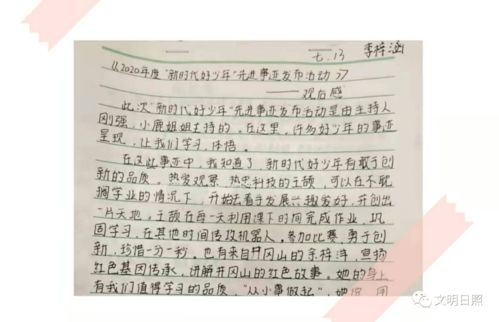 七.13 李梓涵
《2020年度"新时代好少年"先进事迹发布活动》
——观后感
此次"新时代好少年"先进事迹发布活动是由主持人
刚强,小鹿姐姐主持的。在这里,许多好少年的事迹
呈现,让我们学习,体悟。
在这些事迹中,我知道了,新时代好少年有敢于创
新的品质。热爱观察,热忠科技的王硕,可以在不耽
搁学业的情况下,开始去着手发展兴趣爱好,开创出
一片天地,王硕在每一天利用课下时间完成作业,巩
固学习,在其他时间传攻机器人,参加比赛,勇于创
新,珍惜一分一秒。也有来自井冈山的余梓洋,宣扬
红色基因传承,讲解井冈山的红色故事。她的身上
有我们值得学习的品质,"从小事做起",她
文明日照